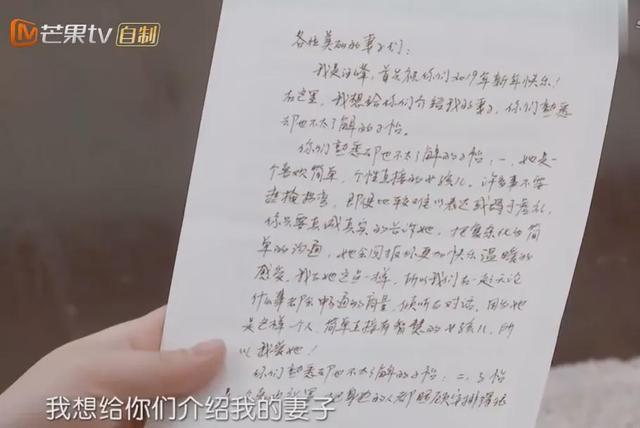 芒果tv 自制
各位美丽的妻子们：
我是汪峰，首先祝你们2019年新年快乐！
在这里，我想给你们介绍我的妻子，你们熟悉
却也不太了解的子怡。
你们熟悉却也不太了解的子怡：一、她是一
个喜欢简单，个性直接的女孩儿。许多事不要
遮掩拐弯，即便比较难以表达或碍于虚礼，
你只要真诚真实的告诉她，把复杂化为简
单的沟通，她会回报你更加快乐温暖的
感受。我与她这点一样，所以我们在一起无论
什么事都会畅通的商量，倾听与对话。因为她
是这样一个人，简单直接有智慧的女孩儿，所
以我爱她！
你们熟悉却也不太了解的子怡：二、子怡
我想给你们介绍我的妻子